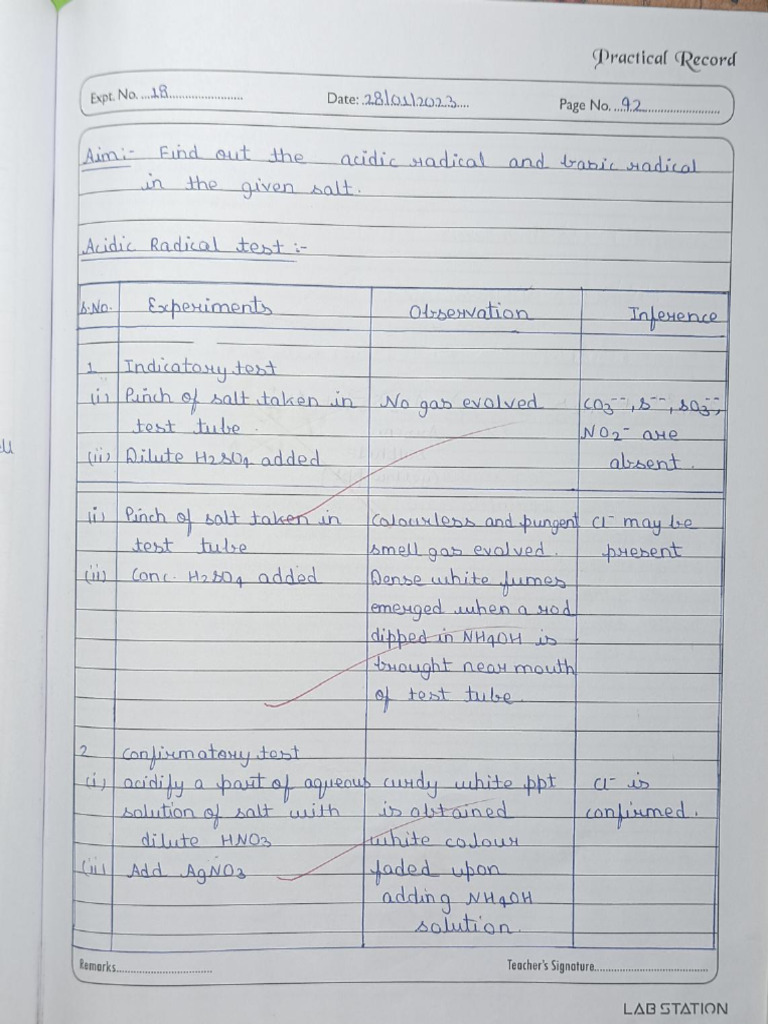 Practical Record
Expt. No. 18 Date: 28/01/2023 Page No. 92
Aim:- Find out the acidic radical and basic radical
in the given salt.
Acidic Radical test :-
S.No. Experiments Observation Inference
1 Indicatory test
(i) Pinch of salt taken in No gas evolved CO3--, S--, SO3--,
test tube. NO2- are
(ii) Dilute H2SO4 added absent.
(i) Pinch of salt taken in Colourless and pungent Cl- may be
test tube smell gas evolved. present
(ii) Conc. H2SO4 added Dense white fumes
emerged when a rod
dipped in NH4OH is
brought near mouth
of test tube.
2 Confirmatory test
(i) acidify a part of aqueous curdy white ppt Cl- is
solution of salt with is obtained confirmed.
dilute HNO3 white colour
(ii) Add AgNO3 faded upon
adding NH4OH
solution.
Remarks Teacher's Signature
LAB STATION